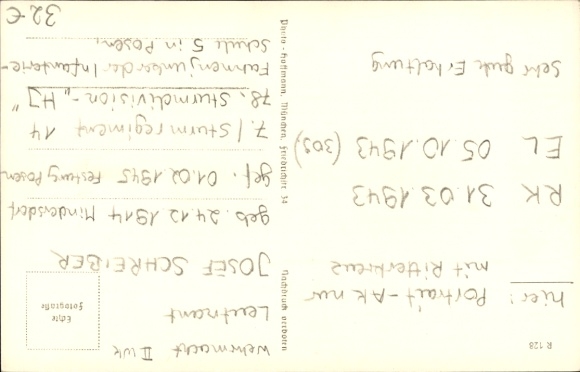 R 128
hier: Portrait-AK nur
mit Ritterkreuz
RK 31.03.1943
EL 05.10.1943 (309)
sehr gute Erhaltung
Nachdruck verboten
Photo-Hoffmann, München, Friedrichstr. 34
Wehrmacht II Wk
Leutnant
Echte
Fotografie
JOSEF SCHREIBER
geb. 24.12.1914 Mindersdorf
gef. 01.02.1945 Festung Posen
7./Sturmregiment 14
78. Sturmdivision - „HJ"
Fahnenjunker der Infanterie-
schule 5 in Posen.
32 €